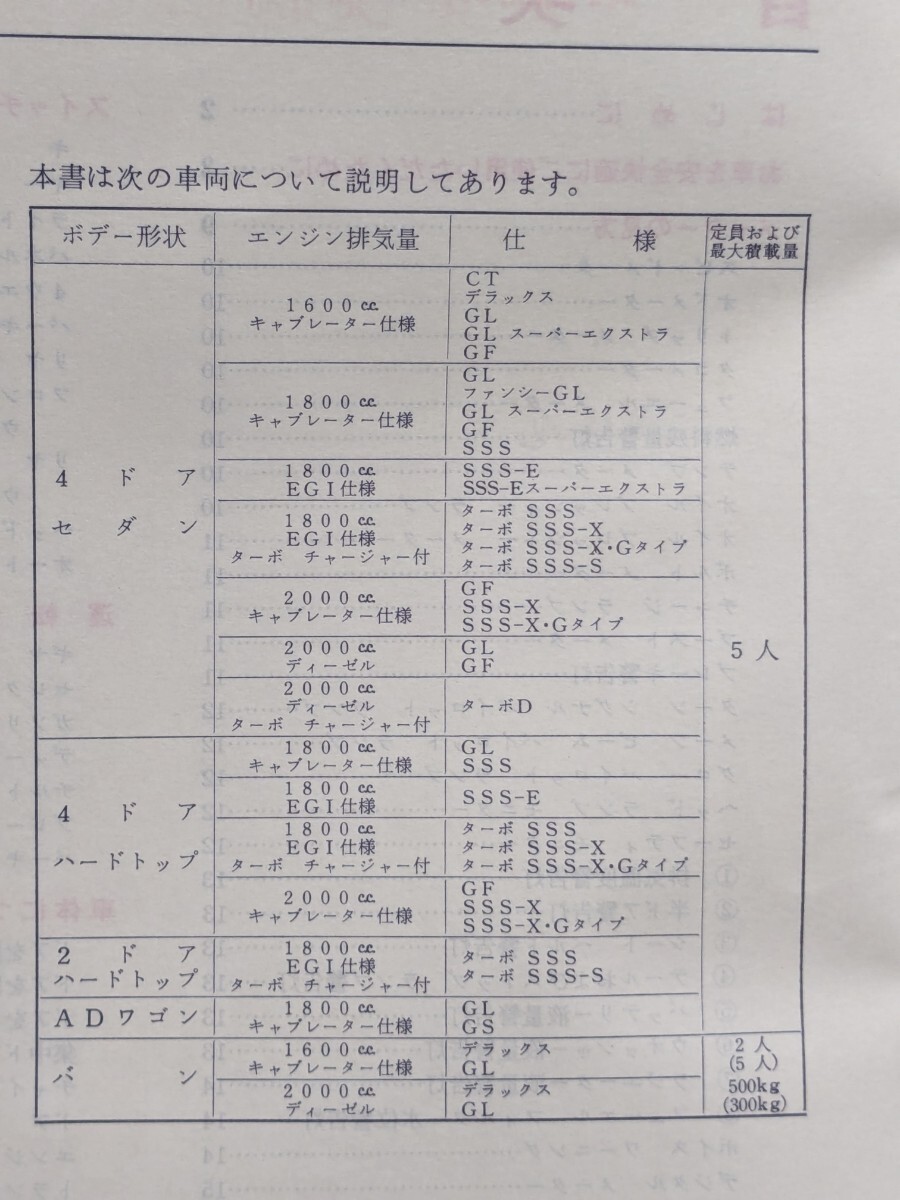 本書は次の車両について説明してあります。
ボデー形状 エンジン排気量 仕様 定員および最大積載量
4ドアセダン
1600cc.
キャブレーター仕様
CT
デラックス
GL
GL スーパーエクストラ
GF
1800cc.
キャブレーター仕様
GL
ファンシーGL
GL スーパーエクストラ
GF
SSS
1800cc.
EGI仕様
SSS-E
SSS-Eスーパーエクストラ
1800cc.
EGI仕様
ターボ チャージャー付
ターボ SSS
ターボ SSS-X
ターボ SSS-X・Gタイプ
ターボ SSS-S
2000cc.
キャブレーター仕様
GF
SSS-X
SSS-X・Gタイプ
2000cc.
ディーゼル
GL
GF
2000cc.
ディーゼル
ターボ チャージャー付
ターボD
5人
4ドア
ハードトップ
1800cc.
キャブレーター仕様
GL
SSS
1800cc.
EGI仕様
SSS-E
1800cc.
EGI仕様
ターボ チャージャー付
ターボ SSS
ターボ SSS-X
ターボ SSS-X・Gタイプ
2000cc.
キャブレーター仕様
GF
SSS-X
SSS-X・Gタイプ
2ドア
ハードトップ
1800cc.
EGI仕様
ターボ チャージャー付
ターボ SSS
ターボ SSS-S
ADワゴン
1800cc.
キャブレーター仕様
GL
GS
バン
1600cc.
キャブレーター仕様
デラックス
GL
2000cc.
ディーゼル
デラックス
GL
2人
(5人)
500kg
(300kg)